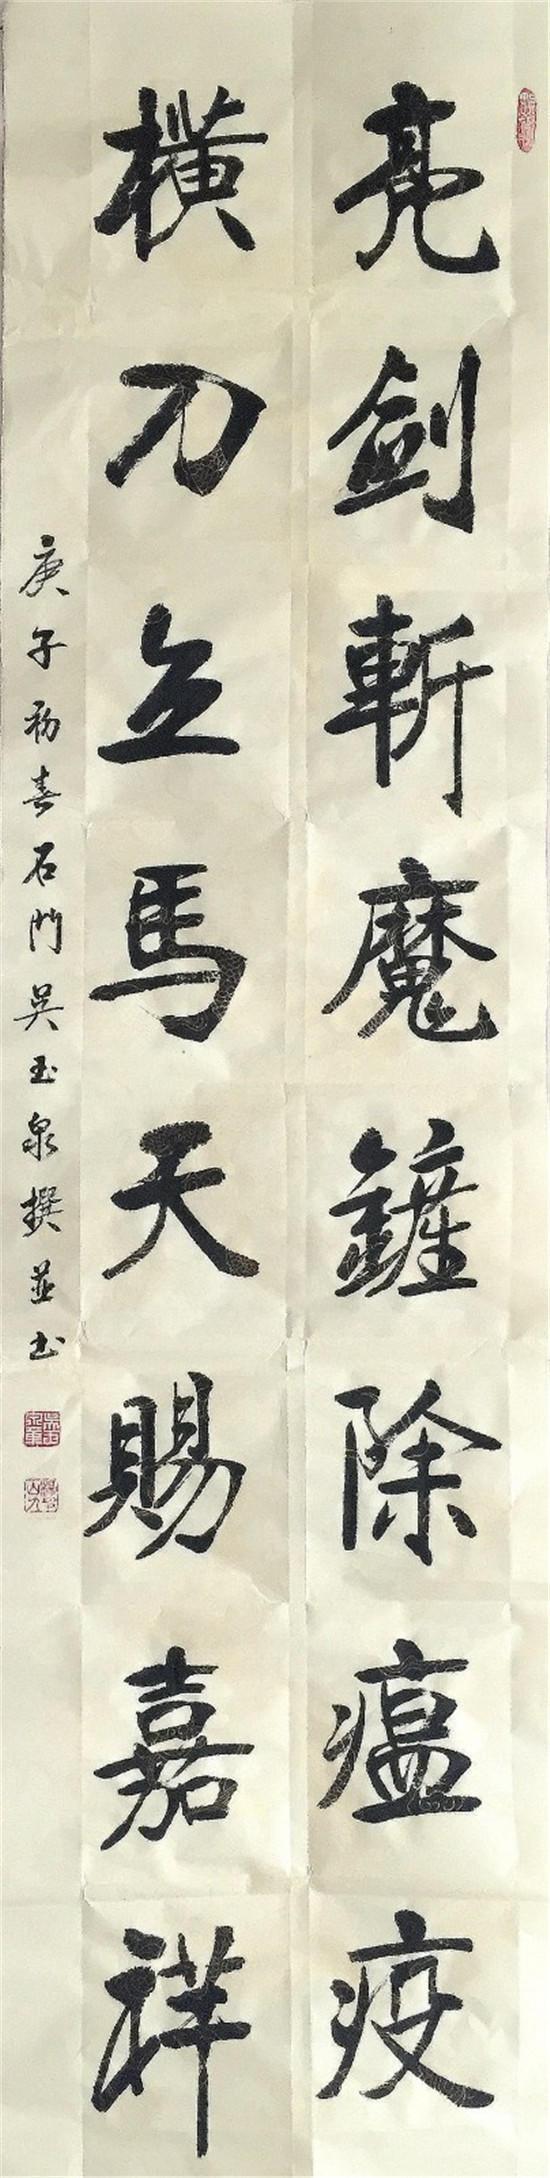 亮剑斬魔鏟除瘟疫
横刀立馬天賜嘉祥
庚子初春石門吴玉泉撰並书